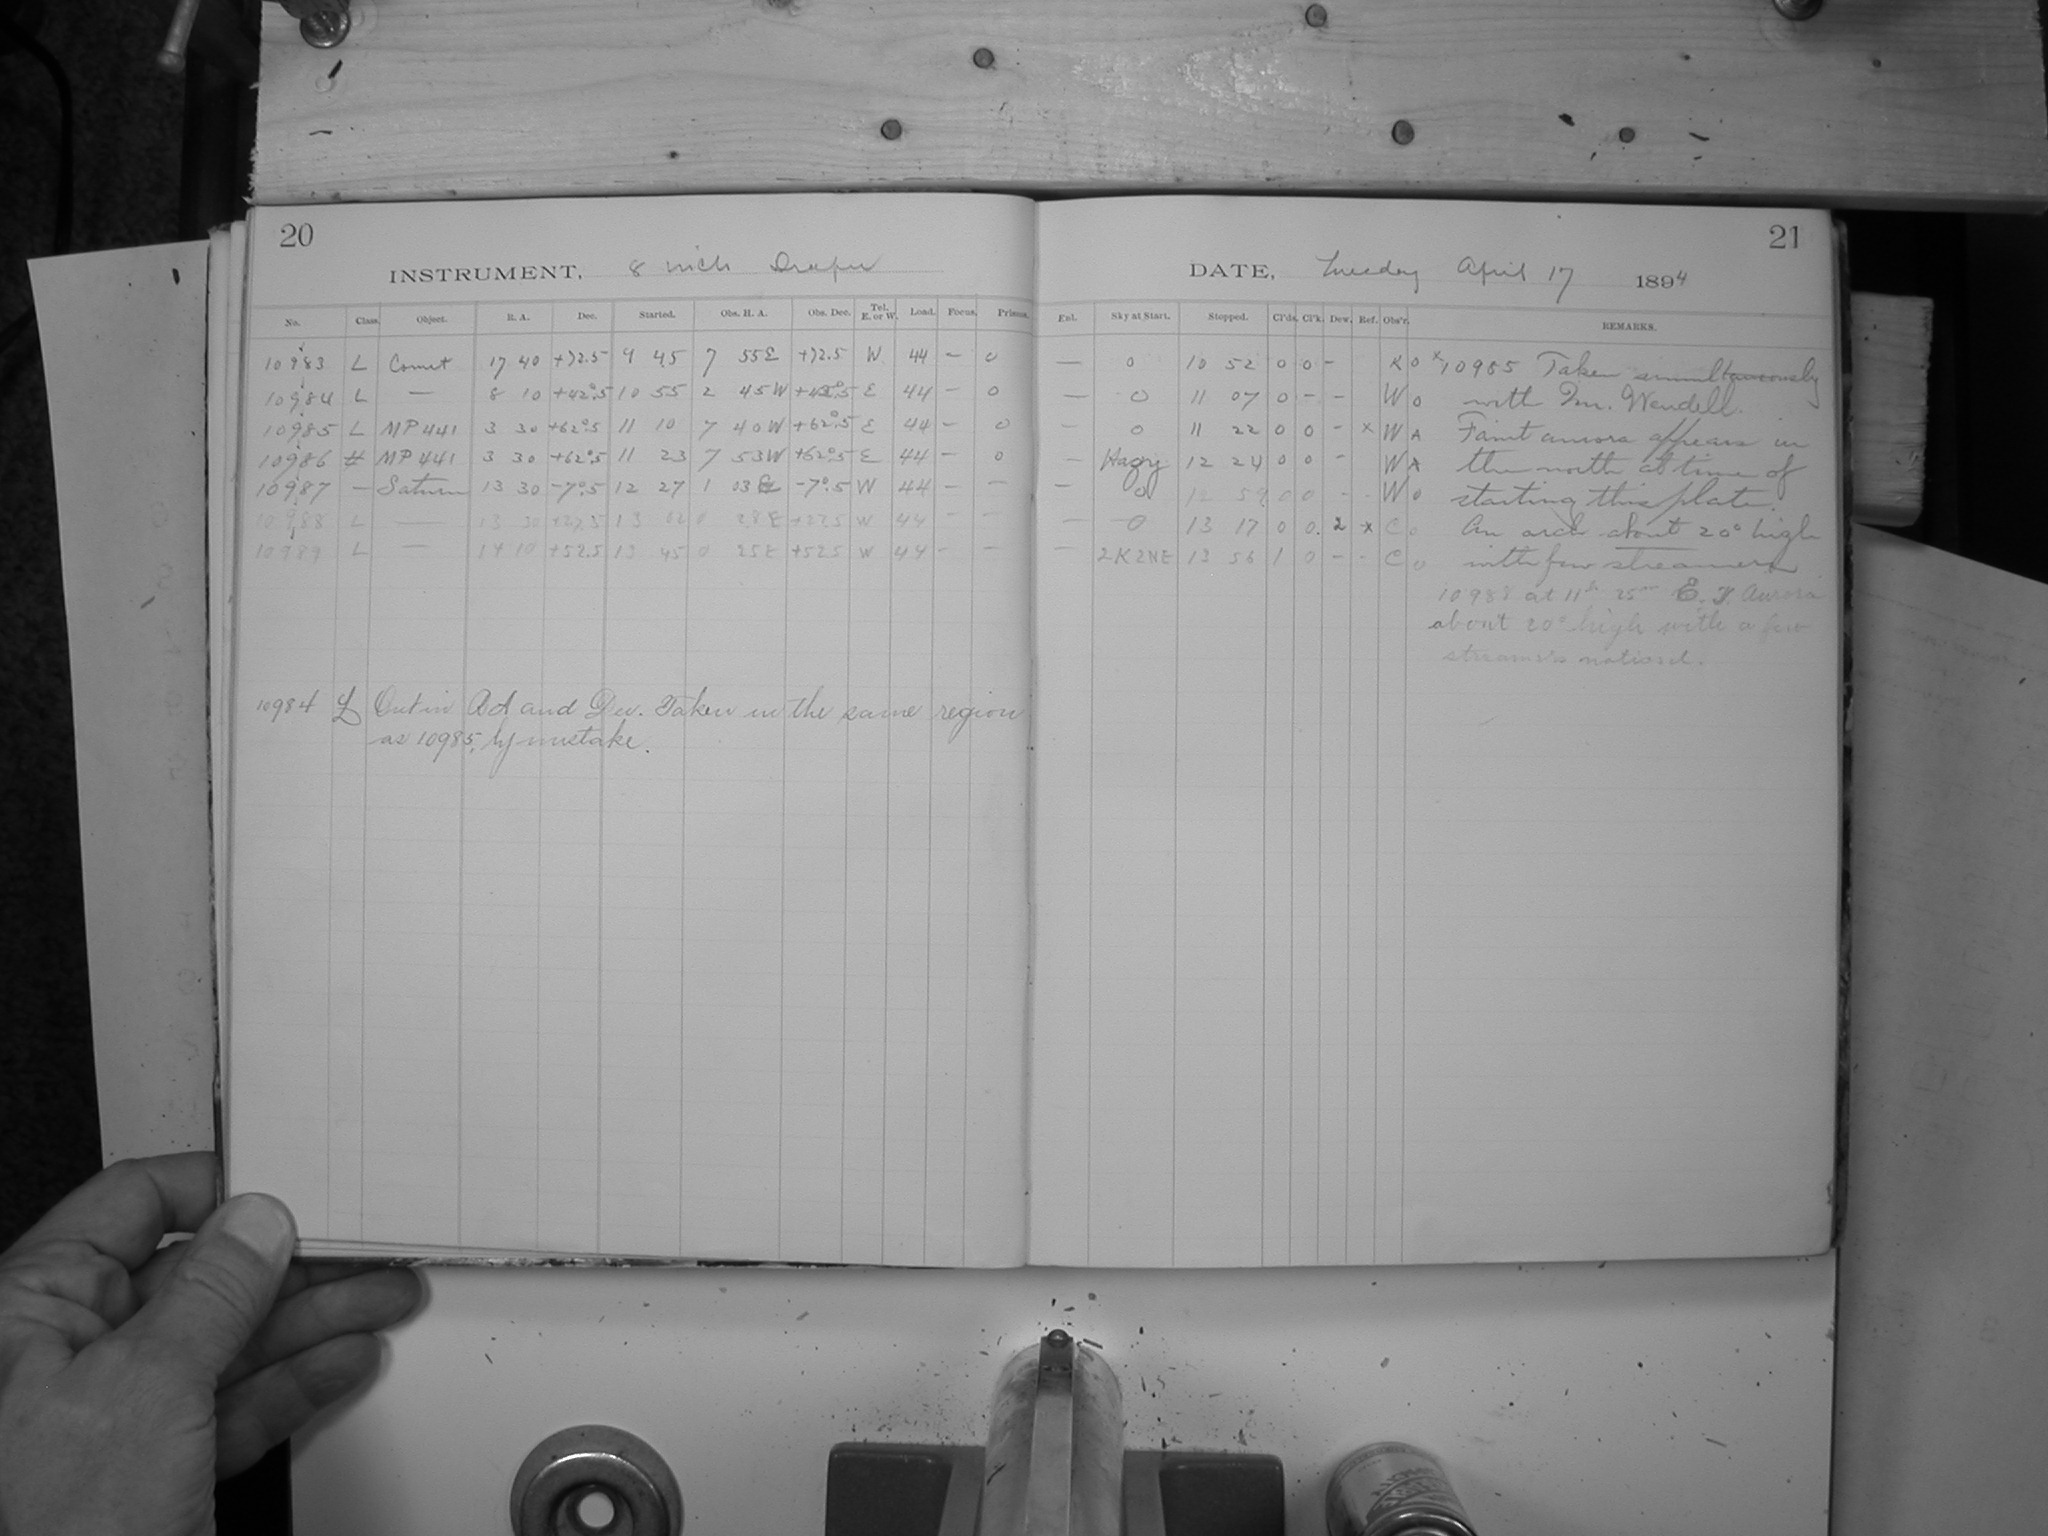 20
INSTRUMENT, 8 inch Draper
No. Class. Object. R. A. Dec. Started. Obs. H. A. Obs. Dec. Tel. E. or W. Load. Focus. Prisms.
10983 L Comet 17 40 +72.5 9 45 7 55E +72.5 W 44 – 0
10984 L — 8 10 +42°.5 10 55 2 45W E 44 – 0
10985 L MP 441 3 30 +62°.5 11 10 7 40W +62°.5 E 44 – 0
10986 # MP 441 3 30 +62°.5 11 23 7 53W +62°.5 E 44 – 0
10987 – Saturn 13 30 –7°.5 12 27 1 03E –7°.5 W 44 – –
10988 L — 13 30 +27.5 13 02 0 28E +27.5 W 44 – –
10989 L — 14 10 +52.5 13 45 0 25E +52.5 W 44 – –
10984 L Out in RA and Dec. Taken in the same region
as 10985, by mistake.
21
DATE, Tuesday April 17 1894
Enl. Sky at Start. Stopped. Cl'ds. Cl'k. Dew. Ref. Obs'r. REMARKS.
— 0 10 52 0 0 – K 0 x10985 Taken simultaneously
— 0 11 07 0 – – W 0 with Mr. Wendell.
– 0 11 22 0 0 – x W A Faint aurora appears in
– Hazy 12 24 0 0 – W A the north at time of
– 0 12 59 0 0 – – W 0 starting this plate.
– 0 13 17 0 0. 2 x C 0 An arch about 20° high
– 2K2NE 13 56 1 0 – – C 0 with few streamers
10988 at 11h 25m E. T. Aurora
about 20° high with a few
streamers noticed.